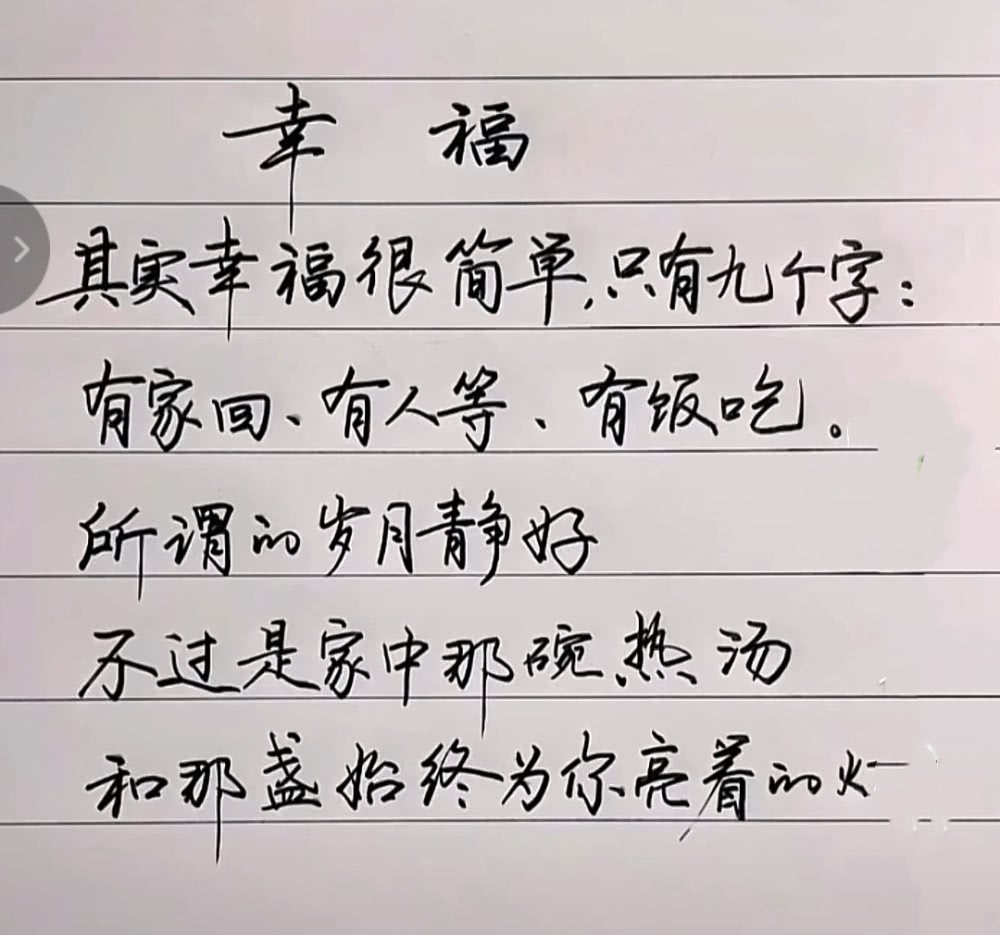 幸 福
其实幸福很简单,只有九个字:
有家回、有人等、有饭吃。
所谓的岁月静好
不过是家中那碗热汤
和那盏始终为你亮着的